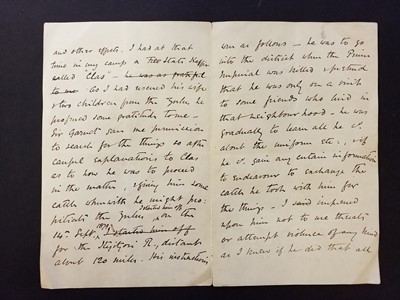 and other effects. I had at that
time in my camp a Free State Kaffir
called "Clas" - he was so grateful
to me As I had rescued his wife
& two children from the Zulus he
professed some gratitude to me -
Sir Garnet gave me permission
to search for the things so after
careful explanations to Clas
as to how he was to proceed
in the matter, & giving him some
cattle wherewith he might pro-
pitiate the Zulus, on the
I started him off
14th Sept. 1879 I started him off
for the R., distant
about 120 miles. His instructions
were as follows - he was to go
into the district where the Prince
Imperial was killed & pretend
that he was only on a visit
to some friends who lived in
that neighbourhood - he was
gradually to learn all he cd.
about the uniform etc., & if
he cd. gain any certain information
to endeavour to exchange the
cattle he took with him for
the things - I said impressed
upon him not to use threats
or attempt violence of any kind
as I knew if he did that all